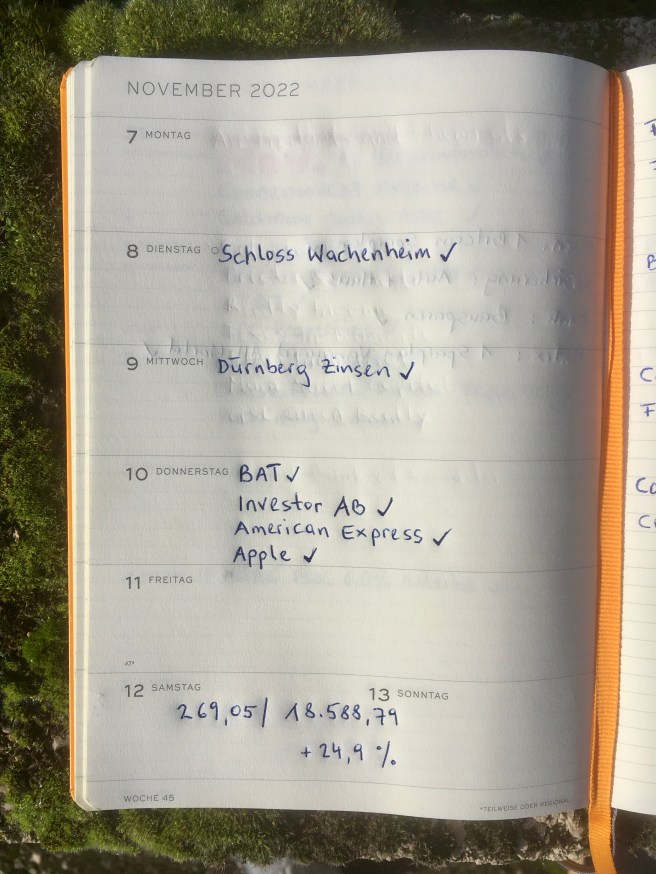 NOVEMBER 2022
7 MONTAG
8 DIENSTAG Schloss Wachenheim ✓
9 MITTWOCH Dürnberg Zinsen ✓
10 DONNERSTAG BAT ✓
Investor AB ✓
American Express ✓
Apple ✓
11 FREITAG
12 SAMSTAG
13 SONNTAG
269,05 / 18.588,79
+ 24,9 %
WOCHE 45
*TEILWEISE ODER REGIONAL